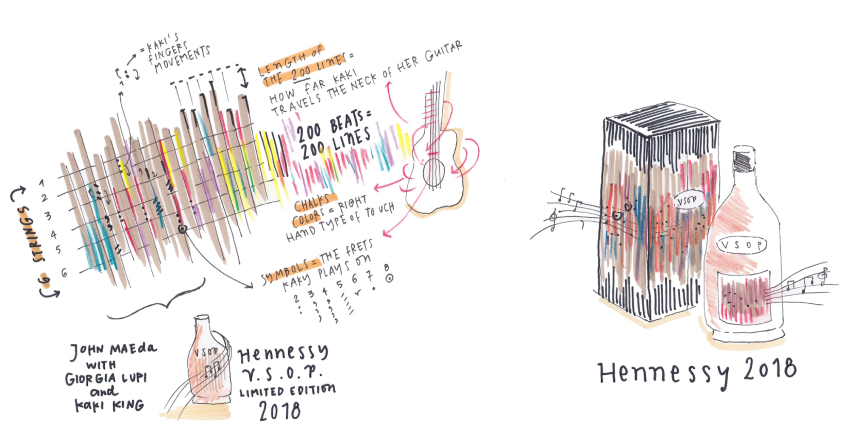 = KAKI'S
FINGERS
MOVEMENTS
LENGTH OF
THE 200 LINES =
HOW FAR KAKI
TRAVELS THE NECK OF HER GUITAR
200 BEATS =
200 LINES
1
2
3
4
5
6
6 STRINGS
CHALFS
COLORS = RIGHT
HAND TYPE OF TOUCH
SYMBOLS = THE FRETS
KAKY PLAYS ON
2 3 4 5 6 7 8
JOHN MAEda
WITH
GIORGIA LUPI
and
KaKi KING
VSOP
Hennessy
V.S.O.P.
LIMITED EDITION
2018
VSOP
VSOP
Hennessy 2018